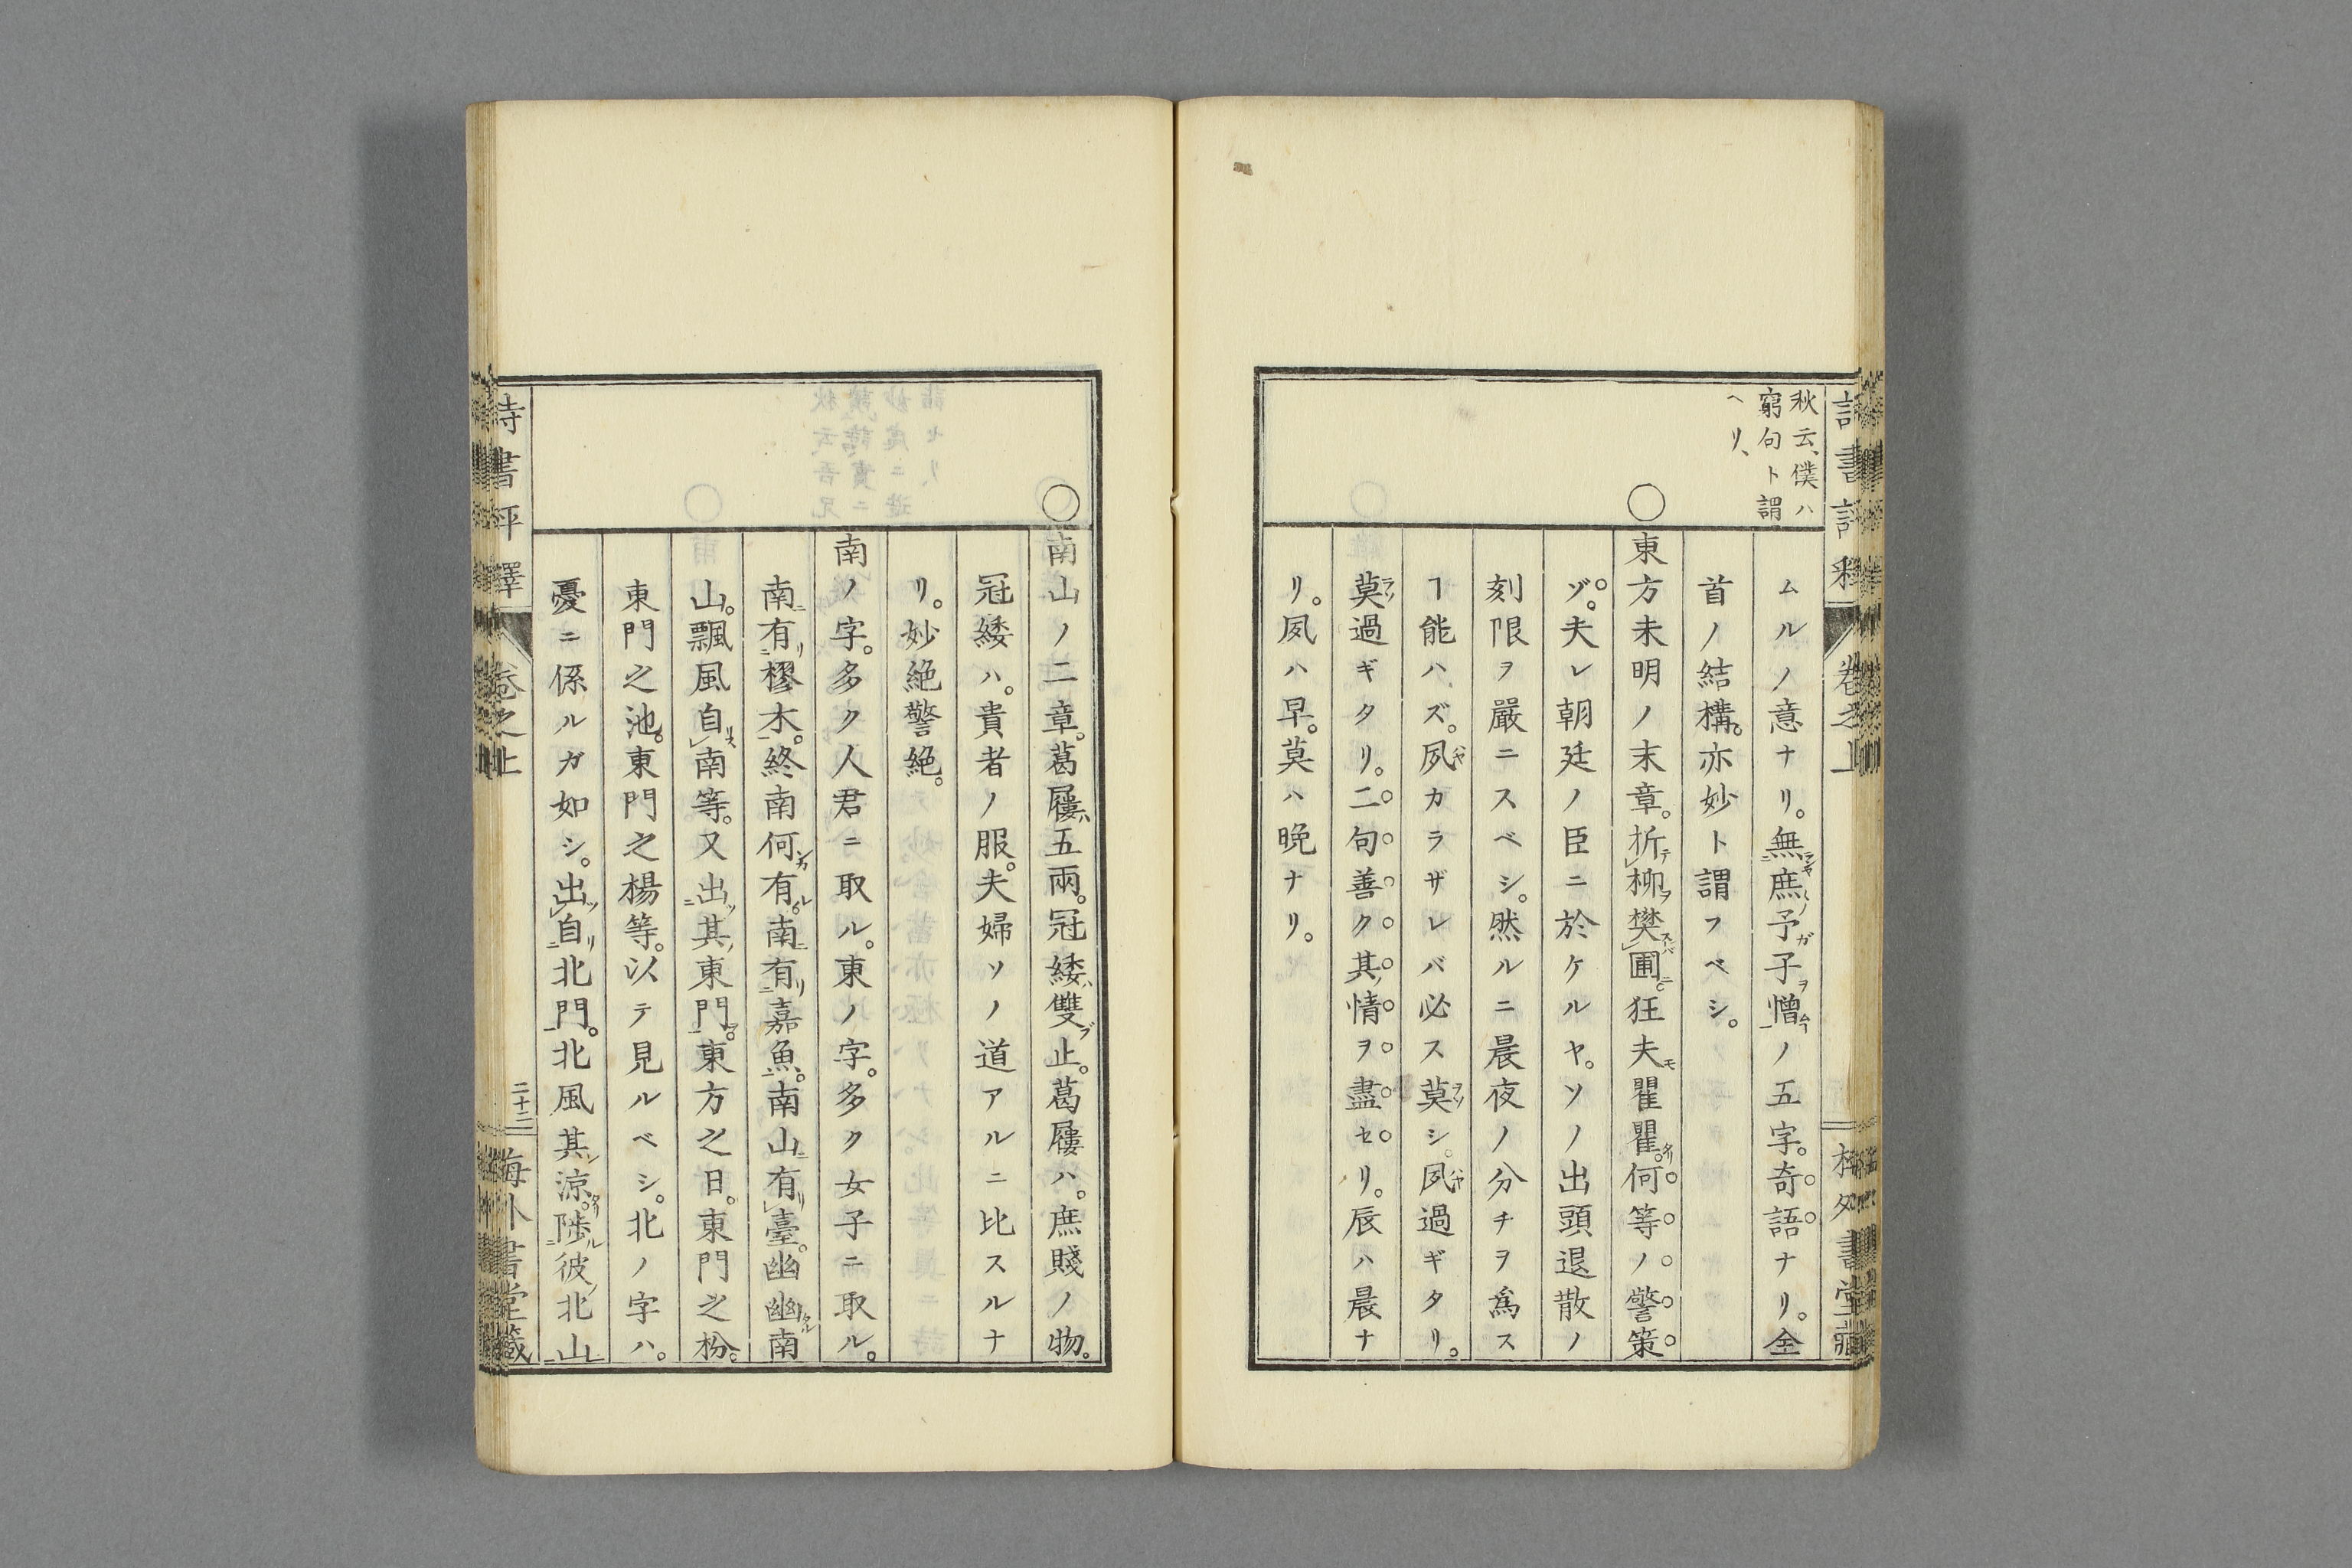 秋云、僕ハ
窮句ト謂
ヘリ、
ムルノ意ナリ。無庶予子憎ノ五字。奇語ナリ。全
首ノ結構。亦妙ト謂フベシ。
○東方未明ノ末章。折柳樊圃。狂夫瞿瞿。何等ノ警策
ゾ。夫レ朝廷ノ臣ニ於ケルヤ。ソノ出頭退散ノ
刻限ヲ嚴ニスベシ。然ルニ晨夜ノ分チヲ爲ス
ヿ能ハズ。夙カラザレバ必ス莫シ。夙過ギタリ。
莫過ギタリ。二句善ク其情ヲ盡セリ。辰ハ晨ナ
リ。夙ハ早。莫ハ晩ナリ。
○南山ノ二章。葛屨五兩。冠緌雙止。葛屨ハ。庶賤ノ物。
冠緌ハ。貴者ノ服。夫婦ソノ道アルニ比スルナ
リ。妙絶警絶。
南ノ字。多ク人君ニ取ル。東ノ字。多ク女子ニ取ル。
南有樛木。終南何有。南有嘉魚。南山有臺。幽幽南
山。飄風自南等。又出其東門。東方之日。東門之枌。
東門之池。東門之楊等。以テ見ルベシ。北ノ字ハ。
憂ニ係ルガ如シ。出自北門。北風其涼。陟彼北山
詩書評釋 卷之上 二十二 梅外書堂藏